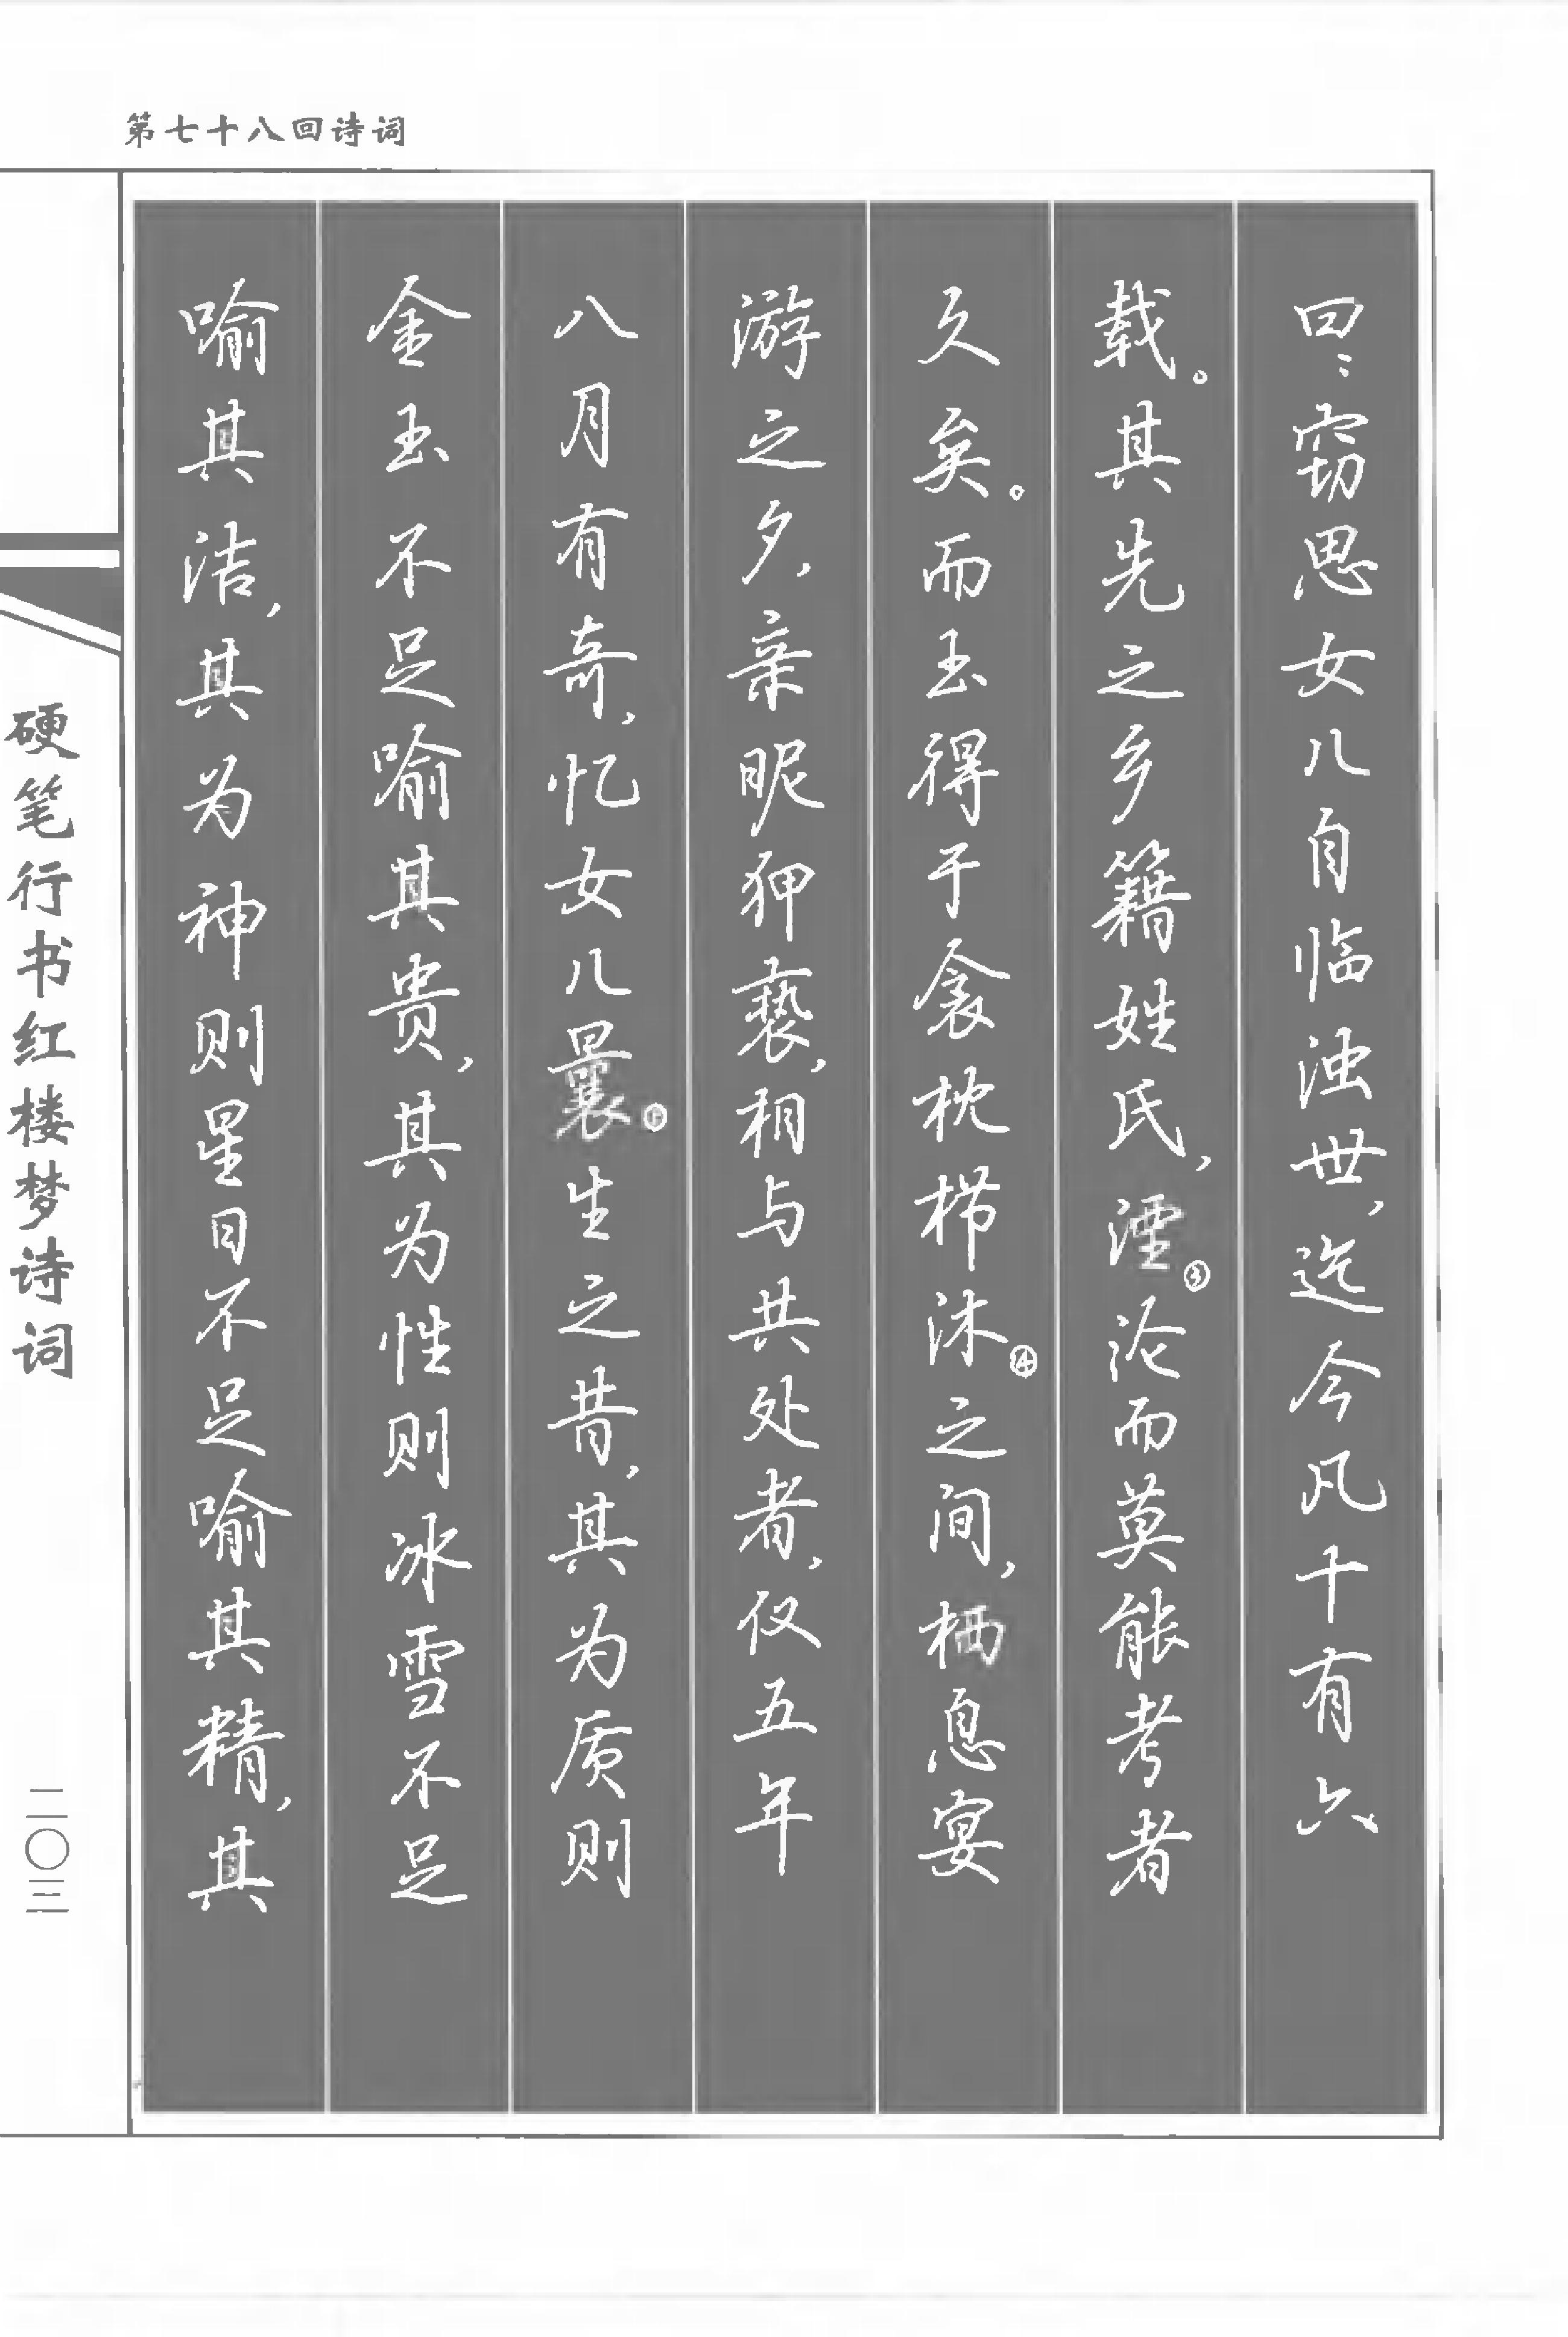 第七十八回诗词
曰：窃思女儿自临浊世，迄今凡十有六
载。其先之乡籍姓氏，湮③沦而莫能考者
久矣。而玉得于衾枕栉沐④之间，栖息宴
游之夕，亲昵狎亵，相与共处者，仅五年
八月有奇，忆女儿曩生之昔，其为质则
金玉不足喻其贵，其为性则冰雪不足
喻其洁，其为神则星日不足喻其精，其
硬笔行书红楼梦诗词
二〇三